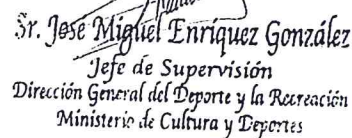 Sr. José Miguel Enríquez González
Jefe de Supervisión
Dirección General del Deporte y la Recreación
Ministerio de Cultura y Deportes